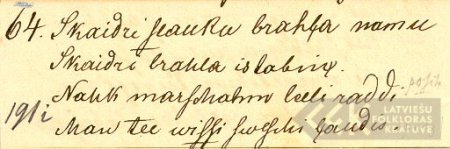 64. Skaidri slauku brahļa namu
Skaidri brahļa istabiņ.
Nahk marschahm leeli raddi
191i Man tee wissi sweschi ļaudis.
LATVIEŠU
FOLKLORAS
KRĀTUVE